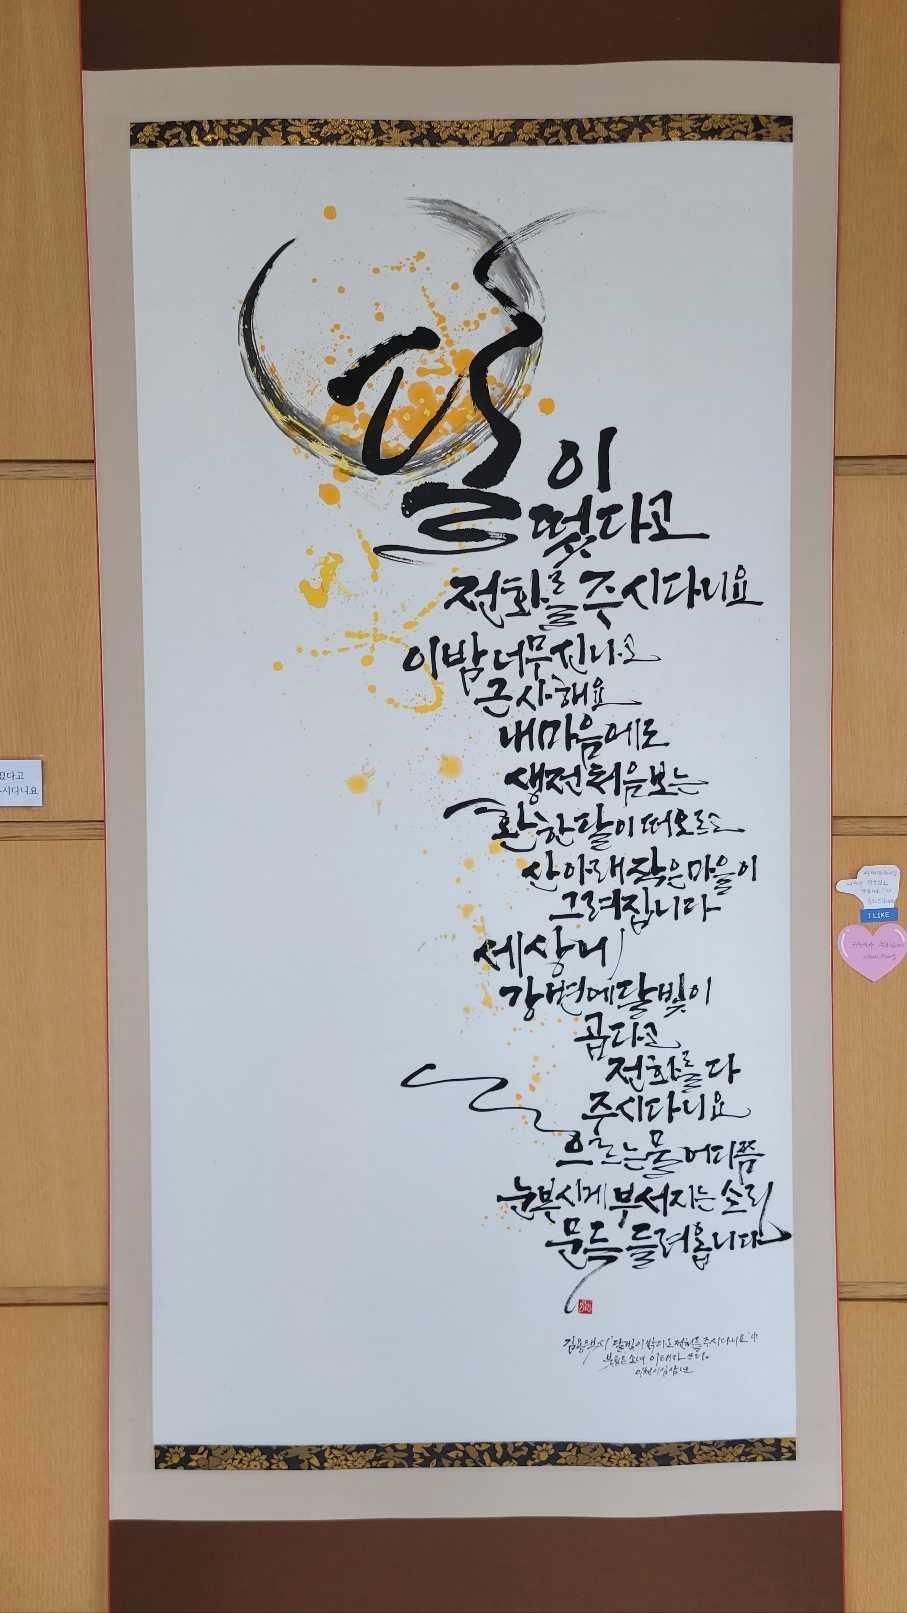 달이
떴다고
전화를 주시다니요
이밤 너무 신나고
근사해요
내 마음에도
생전 처음 보는
환한 달이 떠오르고
산 아래 작은 마을이
그려집니다
세상에
강변에 달빛이
곱다고
전화를 다
주시다니요
흐르는 물 어디쯤
눈부시게 부서지는 소리
문득 들려옵니다
김용택 시 달빛이 전화를 주시다니요 中
소녀 쓰다.
이천이십삼년
떴다고
주시다니요
I LIKE